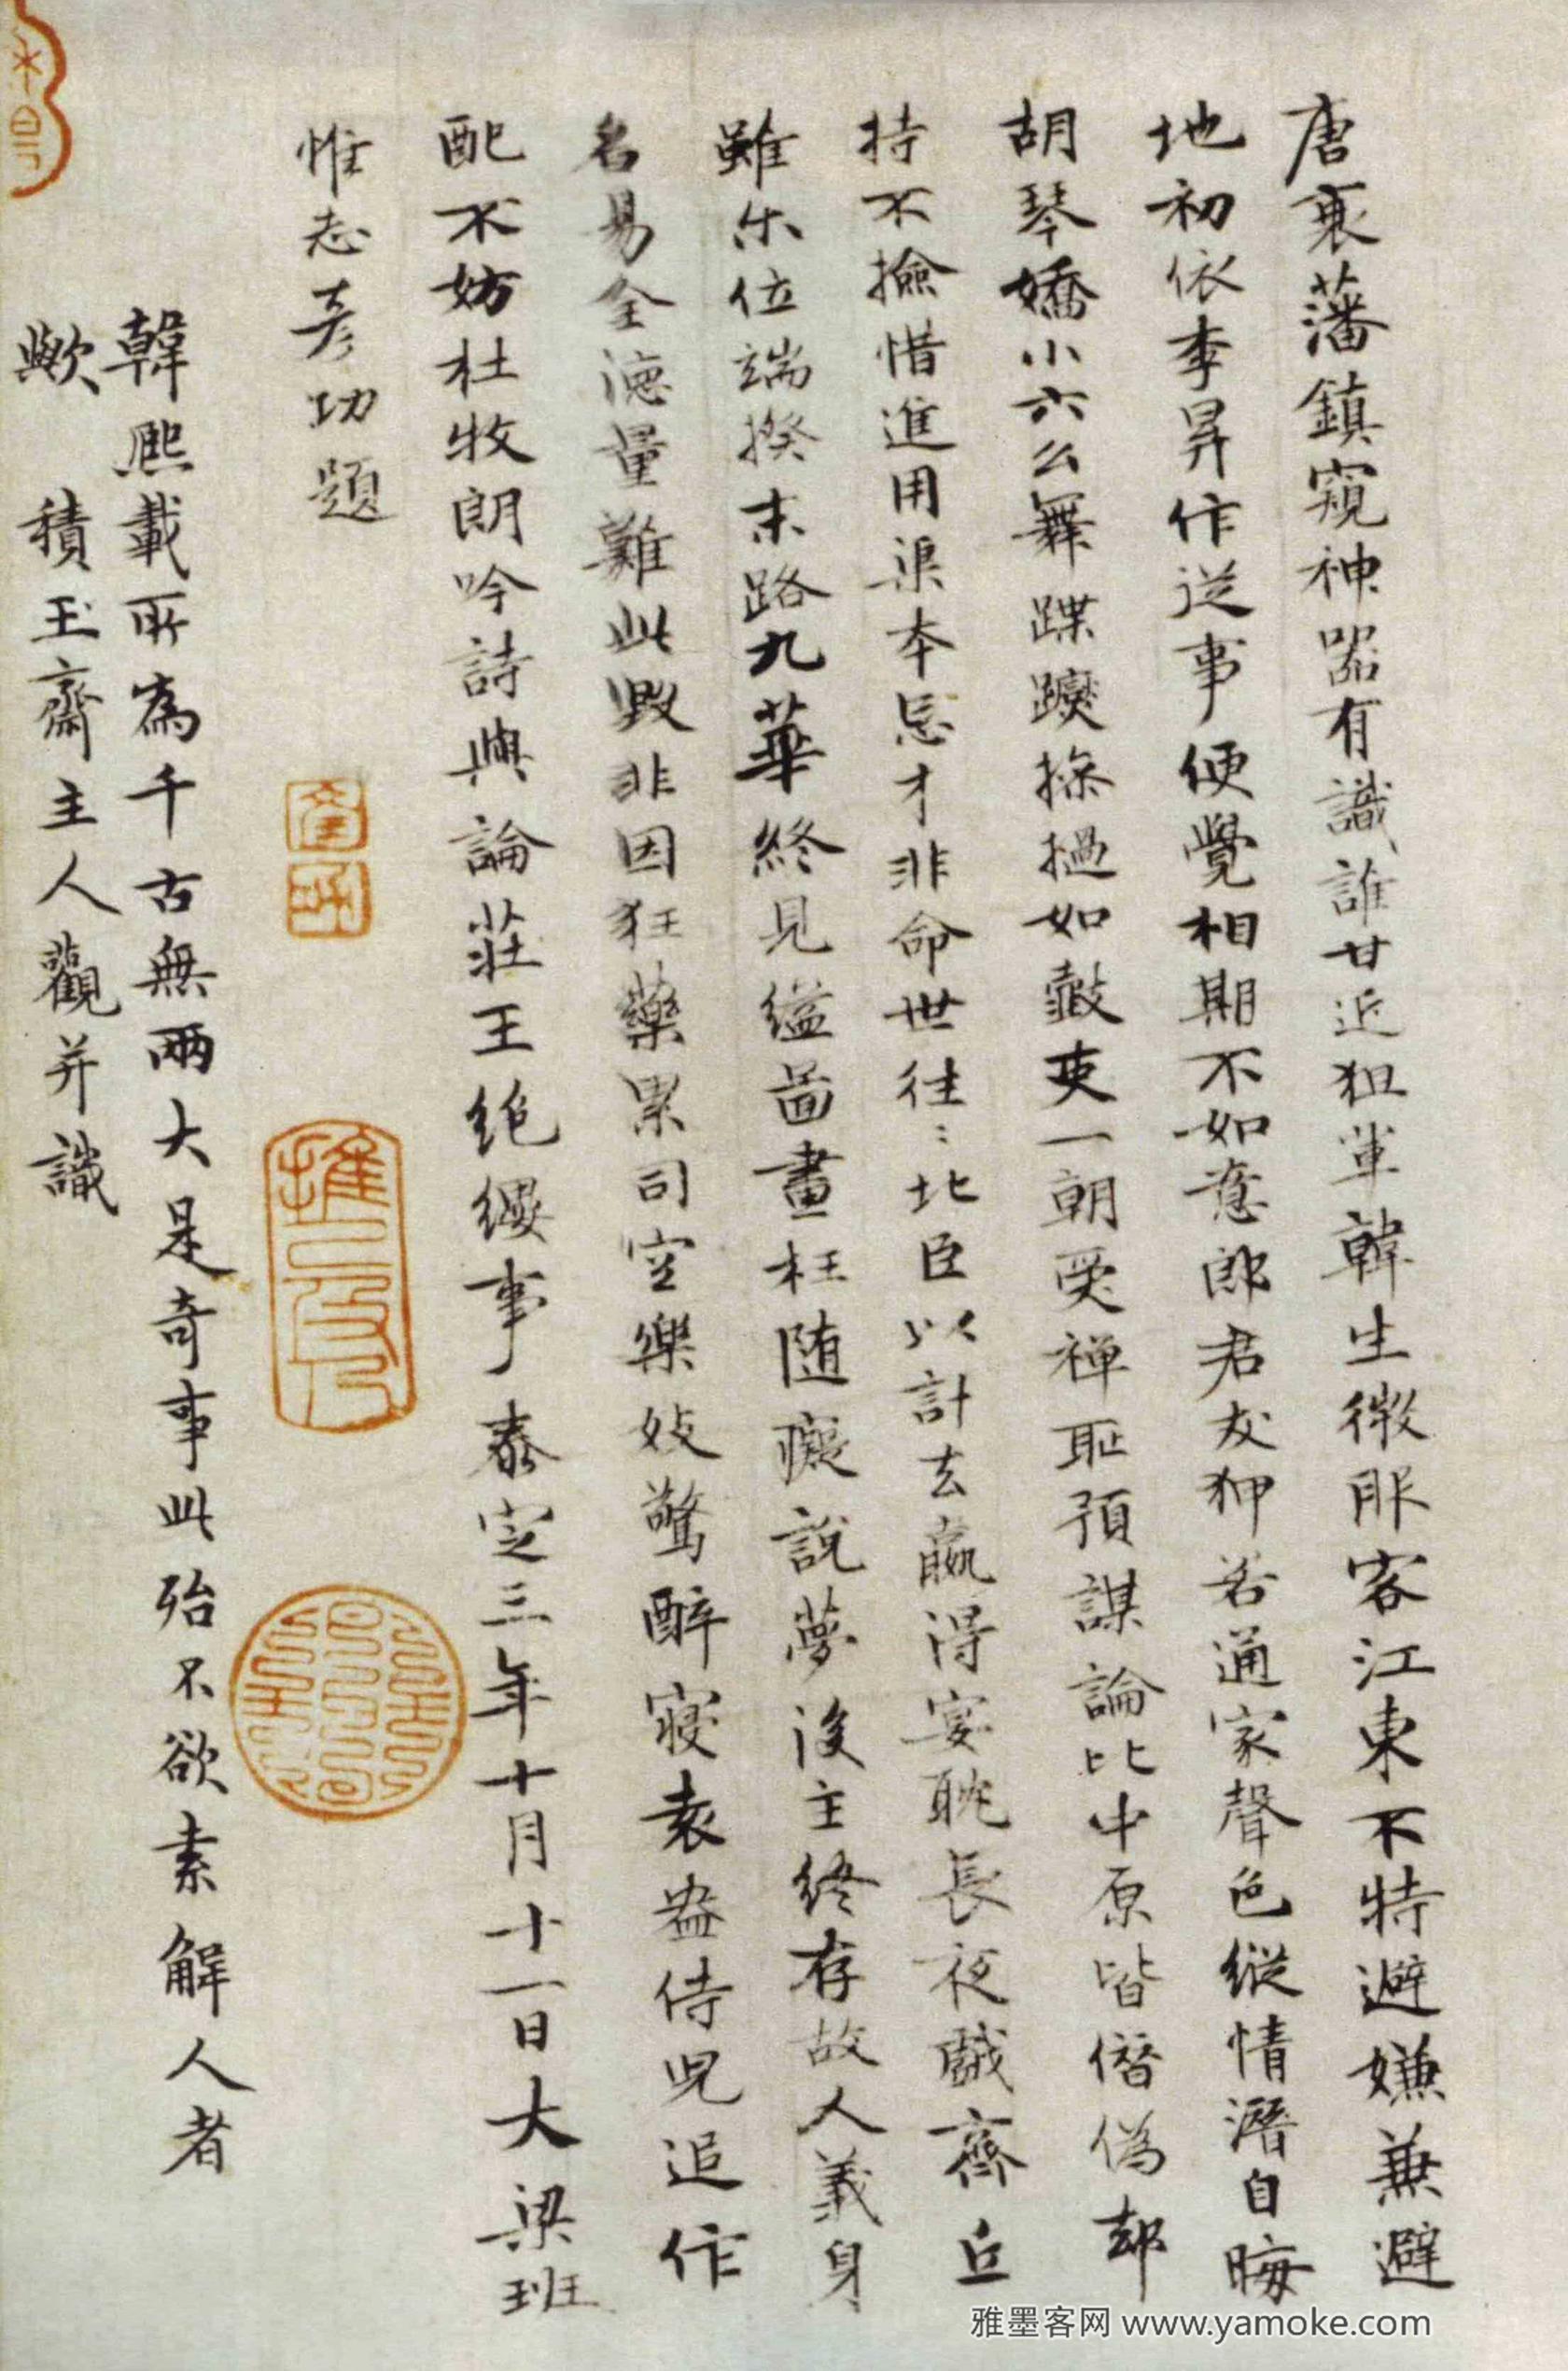 唐衰藩鎮窺神器有識誰甘近狙軍韓生微服客江東不特避嫌兼避
地初依李昇作從事便覺相期不如意郎君友狎若通家聲色縱情潛自晦
胡琴嬌小六么舞蹀躞摻撾如鼓吏一朝受禪恥預謀論比中原皆僭偽却
持不撿惜進用渠本忌才非命世往〻北臣以計去贏得宴耽長夜戲齊丘
雖尔位端揆末路九華終見縊畫枉随癡說夢後主終存故人義身
名易全德量難此毀非因狂藥累司空樂妓驚醉寢袁盎侍兒追作
配不妨杜牧朗吟詩與論莊王絶纓事泰定三年十月十一日大梁班
惟志彥功題
韓熙載所為千古無兩大是奇事此殆不欲素解人者
歟 積玉齋主人觀并識
雅墨客网 www.yamoke.com